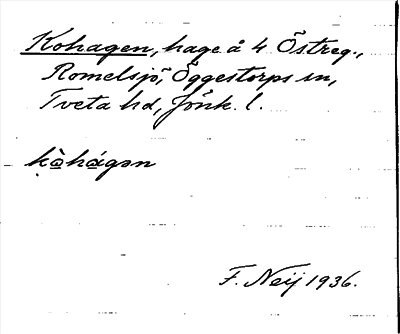 Kohagen, hage å 4 Östreg.,
Romelsjö, Öggestorps sn,
Tveta hd, Jönk. l.
kò̱há̱gən
F. Neij 1936.